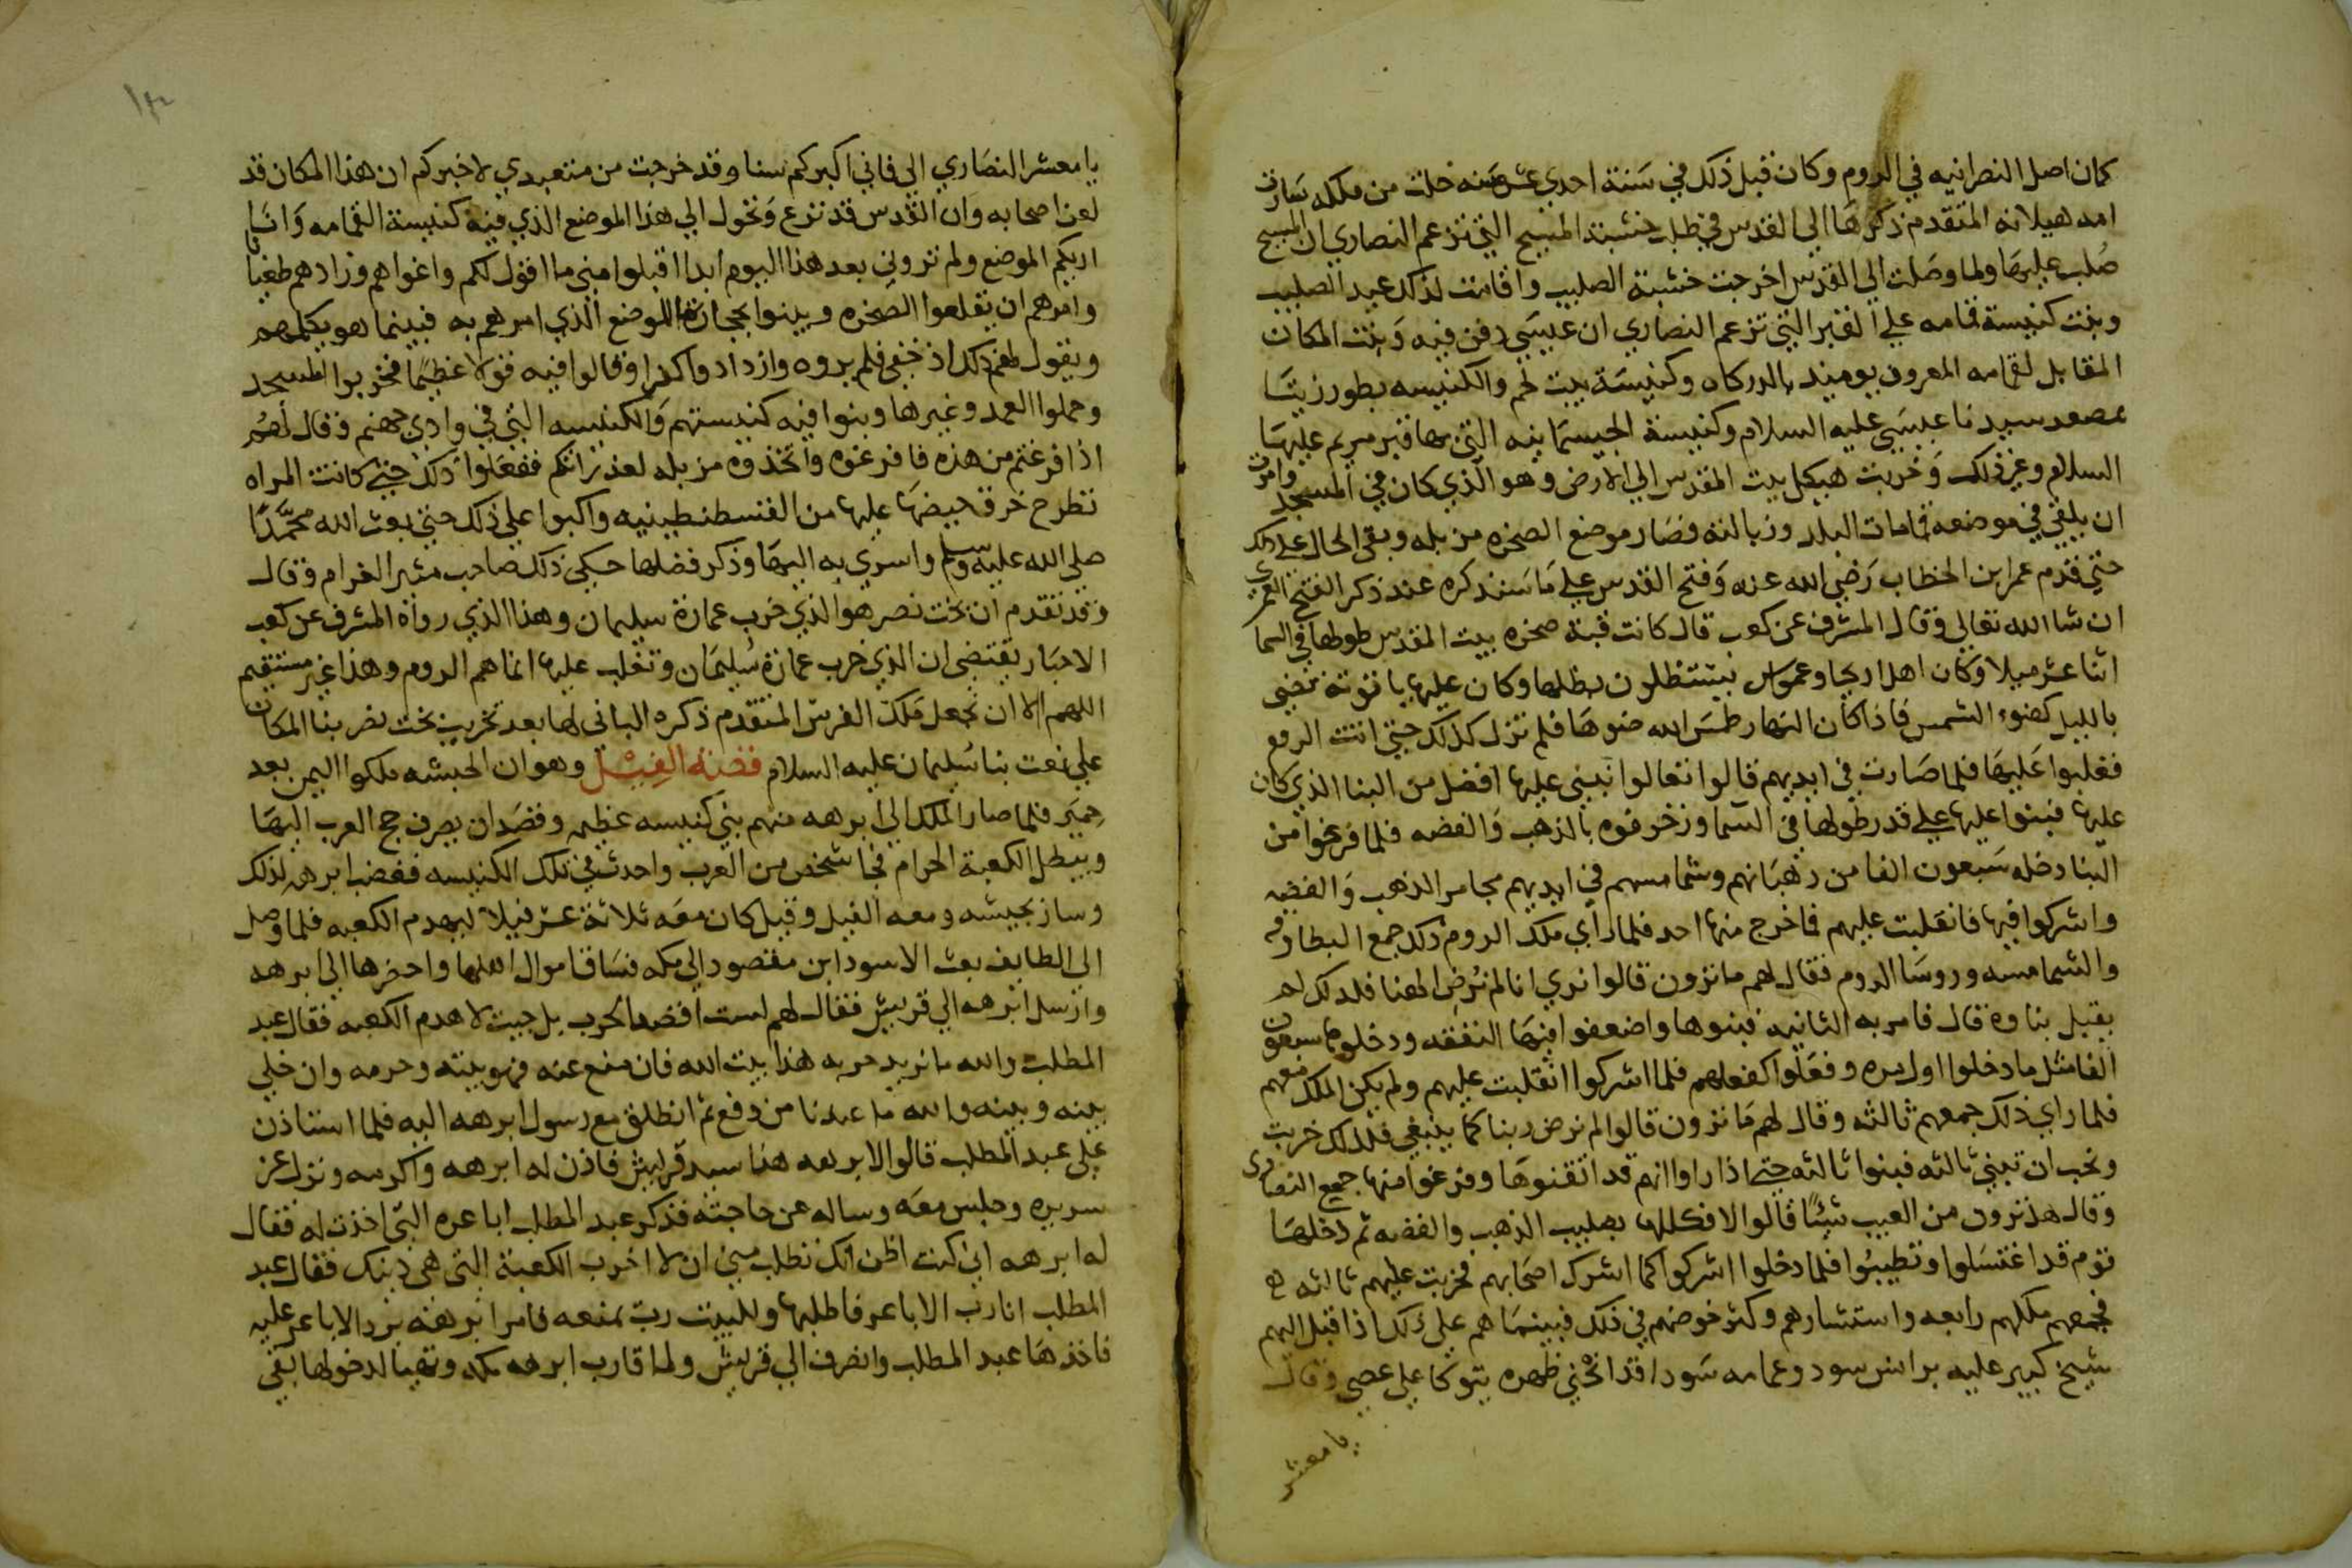 كان اصل النصرانيه في الروم وكان قبل ذلك في سنة احدي عشر سنه خلت من ملكه سارت
امه هيلانه المتقدم ذكرها الي القدس في طلب خشبة المسيح التي تزعم النصاري ان المسيح
صُلب عليها ولما وصلت الي القدس اخرجت خشبة الصليب واقامت لذلك عيد الصليب
وبنت كنيسة قمامه علي القبر التي تزعم النصاري ان عيسَي دفن فيه وَبنت المكان
المقابل لقمامه المعروف يوميذ بالدركاه وكنيسَة بيت لحم والكنيسه بطور زيتَا
بمصعد سيدنا عيسَي عليه السلام وكنيسة الجيسمَانيه التي بها قبر مريم عليهَا
السلام وغير ذلك وَخربت هيكل بيت المقدس الي الارض وهو الذي كان في المسجد وامرت
ان يلقي في موضعه قمامات البلد وزبالته فصَار موضع الصخره مزبله وبقي الحال علي ذلك
حتي قدم عمر ابن الخطاب رَضي الله عنه وَفتح القدس علي مَا سَنذكره عند ذكر الفتح العمري
ان شا الله تعالي وقال المشرف عن كعب قال كانت قبة صخره بيت المقدس طولها في السما
اثنا عشر ميلا وكان اهل اريحا وعمواس يستظلون بظلها وكان عليها ياقوتة تضي
بالليل كضوء الشمس فَاذا كان النهار طمسَ الله ضوهَا فلم تزل كذلك حتي اتت الروم
فغلبوا عَليهَا فلما صَارت في ايديهم قالوا تعالوا نبني عليها افضل من البنا الذي كان
عليها فبنوا عليها علي قدر طولها في السَما وزخرفوه بالذهب وَالفضه فلما فرغوا من
البنا دخله سَبعون الفا من رهبَانهم وشمامسهم في ايديهم مجامر الذهب وَالفضه
واشركوا فيها فانقلبت عليهم فما خرج منها احد فلما رَأي ملك الروم ذلك جمع البطارقه
والشمامسه وروسَا الروم فقال لهم ما ترون قالوا نري انا لم نُرضِ الهنا فلذلك لم
يقبل بناوه قال فامر به الثانيه فبنوها واضعفوا فيهَا النفقه ودخلوها سبعون
الفا مثل ما دخلوا اول مره وفعَلوا كفعلهم فلما اشركوا انقلبت عليهم ولم يكن الملك معهم
فلما راي ذلك جمعهم ثالثه وقال لهم مَا ترون قالوا لم نرض ربنا كما ينبغي فلذلك خربت
ونحب ان تبني ثالثه فبنوا ثالثه حتي اذا راوا انهم قد اتقنوهَا وفرغوا منها جمع النصاري
وقال هل ترون من العيب شيئًا قالوا لا فكللها بصليب الذهب والفضه ثم دخلهَا
قوم قد اغتسَلوا وتطيبُوا فلما دخلوا اشركوا كما اشرك اصحَابهم فخربت عليهم ثالثه
فجمعهم ملكهم رابعه واستشارهم وكثر خوضهم في ذلك فبينمَا هم علي ذلك اذا قبل اليهم
شيخ كبير عليه برانس سود وعمامه سَودا قد انحَني ظهره يتوكا علي عصي وقال
يا معشر
يا معشر النصَاري الي فاني اكبركم سنا وقد خرجت من متعبدي لاخبركم ان هذا المكان قد
لعن اصحابه وَان القدس قد نزع وَتحول الي هذا الموضع الذي فيه كنيسة القمامه وَانَا
اريكم الموضع ولم تروني بعد هذا اليوم ابدا اقبلوا مني ما اقول لكم واغواهم وزادهم طغيانا
وامرهم ان يقلعوا الصَخره ويبنوا بحجارتها الموضع الذي امرهم به فبينما هو يكلمهم
ويقول لهم ذلك اذ خفي فلم يروه وازدادوا كفرا وقالوا فيه قولا عظيمًا فخربوا المسجد
وحملوا العمد وغيرها وبنوا فيه كنيستهم وَالكنيسه التي في وادي جهنم وقال لهُم
اذا فرغتم من هذه فافرغوه واتخذوه مزبله لعذراتكم ففعَلوا ذلك حتي كانت المراه
تطرح خرق حيضهَا عليها من القسطنطينيه واكبوا علي ذلك حتي بعث الله محَمَّدًا
صلي الله عليه وسلم واسري به اليهَا وذكر فضلها حكي ذلك صاحب مثير الغرام وقال
وقد تقدم ان بخت نصر هو الذي خرب عمارة سليمان وهذا الذي رواه المشرف عن كعب
الاحبَار يقتضي ان الذي خرب عمارة سُليمَان وتغلب عليها انما هم الروم وهذا غير مستقيم
اللهم الا ان نجعل مَلك الفرس المتقدم ذكره الباني لها بعد تخريب بخت نصر بنا المكان
علي نعت بنا سُليمان عليه السلام قصَة الفِيْل وهو ان الحبشه ملكوا اليمن بعد
حِميَر فلما صار الملك الي ابرهه منهم بني كنيسه عظيمه وقصَد ان يصرف حج العرب اليهَا
ويبطل الكعبة الحرام فجا شخص من العرب واحدث في تلك الكنيسه فغضب ابرهه لذلك
وسار بجيشه ومعه الفيل وقيل كان معَه ثلاثة عشر فيلا ليهدم الكعبه فلما وصل
الي الطايف بعث الاسود ابن مقصود الي مكه فسَاق اموال اهلها واحضرها الي ابرهه
وارسل ابرهه الي قريش فقال لهم لست اقصد الحرب بل جيت لاهدم الكعبه فقال عبد
المطلب والله ما نريد حربه هذا بيت الله فان منع عنه فهو بيته وحرمه وان خلي
بينه وبينه والله ما عندنا من دفع ثم انطلق مع رسول ابرهه اليه فلما استاذن
علي عبد المطلب قالوا لابرهه هذا سيد قريش فاذن له ابرهه واكرمه ونزل عن
سريره وجلس معَه وساله عن حاجته فذكر عبد المطلب اباعره التي اخذت له فقال
له ابرهه اني كنت اظن انك تطلب مني ان لا اخرب الكعبة التي هي دينك فقال عبد
المطلب انا رب الاباعر فاطلبها وللبيت رب يمنعه فامر ابرهه برد الاباعر عليه
فاخذهَا عبد المطلب وانصرف الي قريش ولما قارب ابرهه مكه وتهيا لدخولها بقي